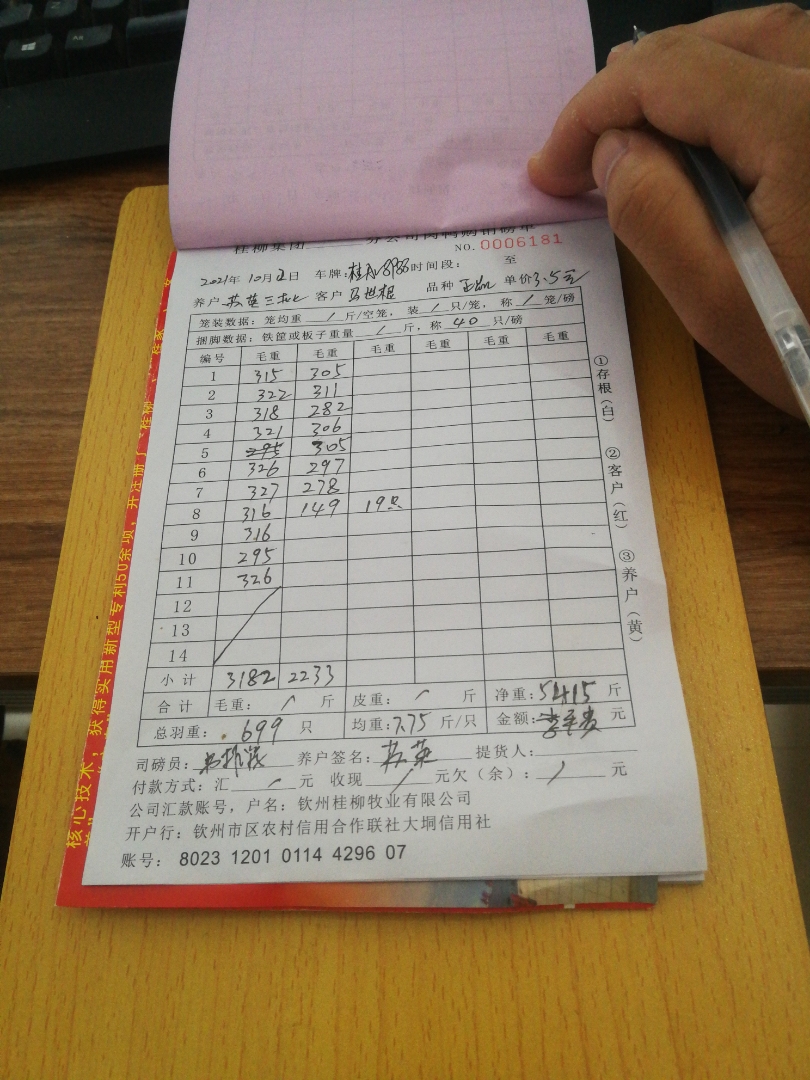 桂柳集团 分公司肉鸭购销磅单
NO. 0006181
2021年 10月2日 车牌: 时间段: 至
养户 苏英三批 客户 马世相 品种 正加 单价3.5元
笼装数据: 笼均重 / 斤/空笼, 装 / 只/笼, 称 / 笼/磅
捆脚数据: 铁筐或板子重量 / 斤, 称 40 只/磅
编号 毛重 毛重 毛重 毛重 毛重 毛重
1 315 305
2 322 311
3 318 282
4 321 306
5 295 305
6 326 297
7 327 278
8 316 149 19只
9 316
10 295
11 326
12
13
14
小计 3182 2233
合计 毛重: / 斤 皮重: / 斤 净重: 5415 斤
总羽重: 699 只 均重: 7.75 斤/只 金额: 元
司磅员: 养户签名: 苏英 提货人:
付款方式: 汇 / 元 收现 / 元欠(余): / 元
公司汇款账号, 户名: 钦州桂柳牧业有限公司
开户行: 钦州市区农村信用合作联社大垌信用社
账号: 8023 1201 0114 4296 07
①存根(白)
②客户(红)
③养户(黄)
核心技术; 获得实用新型专利50余项, 并注册了“桂柳